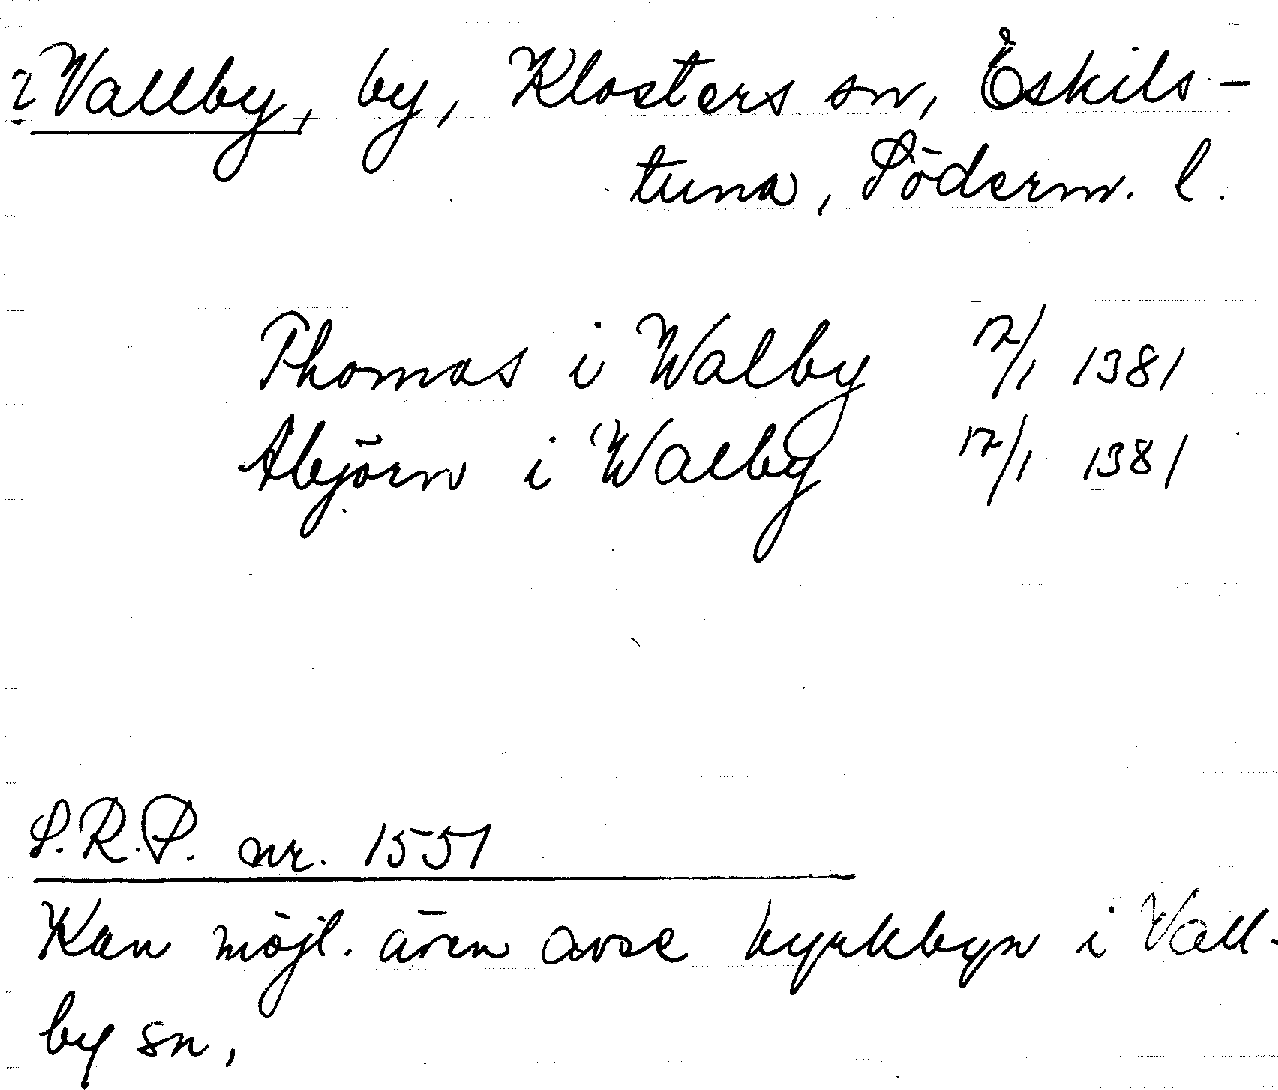 ? Vallby, by, Klosters sn, Eskils-
tuna, Söderm. l.
Thomas i Walby 17/1 1381
Abjörn i Walby 17/1 1381
S.R.P. nr. 1551
Kan möjl. även avse kyrkbyn i Vall-
by sn,